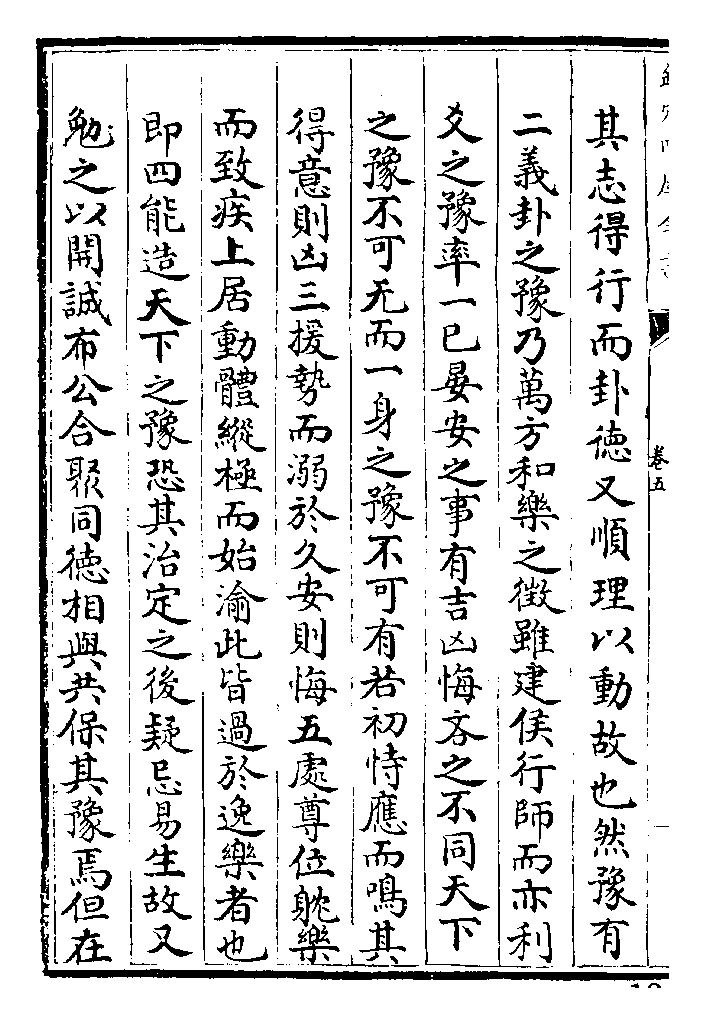 欽定四庫全書
卷五
其志得行而卦德又順理以動故也然豫有
二義卦之豫乃萬方和樂之徵雖建侯行師而亦利
爻之豫率一已晏安之事有吉凶悔吝之不同天下
之豫不可无而一身之豫不可有若初恃應而鳴其
得意則凶三援勢而溺於久安則悔五處尊位躭樂
而致疾上居動體縱極而始渝此皆過於逸樂者也
即四能造天下之豫恐其治定之後疑忌易生故又
勉之以開誠布公合聚同德相與共保其豫焉但在